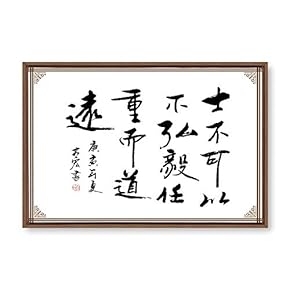 士不可以
不弘毅任
重而道
遠
庚寅夏
書